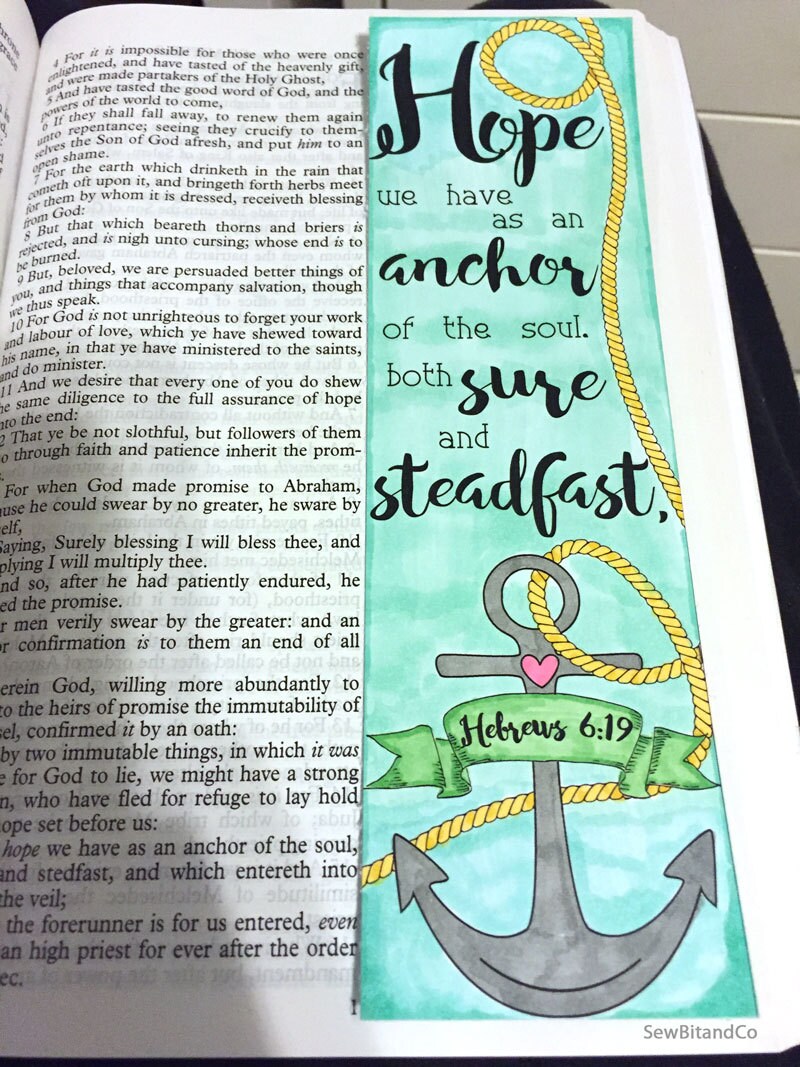 4 For it is impossible for those who were once
enlightened, and have tasted of the heavenly gift,
and were made partakers of the Holy Ghost,
5 And have tasted the good word of God, and the
powers of the world to come,
6 If they shall fall away, to renew them again
unto repentance; seeing they crucify to them-
selves the Son of God afresh, and put him to an
open shame.
7 For the earth which drinketh in the rain that
cometh oft upon it, and bringeth forth herbs meet
for them by whom it is dressed, receiveth blessing
from God:
8 But that which beareth thorns and briers is
rejected, and is nigh unto cursing; whose end is to
be burned.
9 But, beloved, we are persuaded better things of
you, and things that accompany salvation, though
we thus speak.
10 For God is not unrighteous to forget your work
and labour of love, which ye have shewed toward
his name, in that ye have ministered to the saints,
and do minister.
11 And we desire that every one of you do shew
he same diligence to the full assurance of hope
nto the end:
2 That ye be not slothful, but followers of them
o through faith and patience inherit the prom-
s.
For when God made promise to Abraham,
use he could swear by no greater, he sware by
elf,
Saying, Surely blessing I will bless thee, and
plying I will multiply thee.
nd so, after he had patiently endured, he
ed the promise.
r men verily swear by the greater: and an
r confirmation is to them an end of all
erein God, willing more abundantly to
to the heirs of promise the immutability of
sel, confirmed it by an oath:
by two immutable things, in which it was
e for God to lie, we might have a strong
n, who have fled for refuge to lay hold
ope set before us:
hope we have as an anchor of the soul,
and stedfast, and which entereth into
the veil;
the forerunner is for us entered, even
an high priest for ever after the order
ec.
Hope
we have
as an
anchor
of the soul.
both sure
and
steadfast,
Hebrews 6:19
SewBitandCo